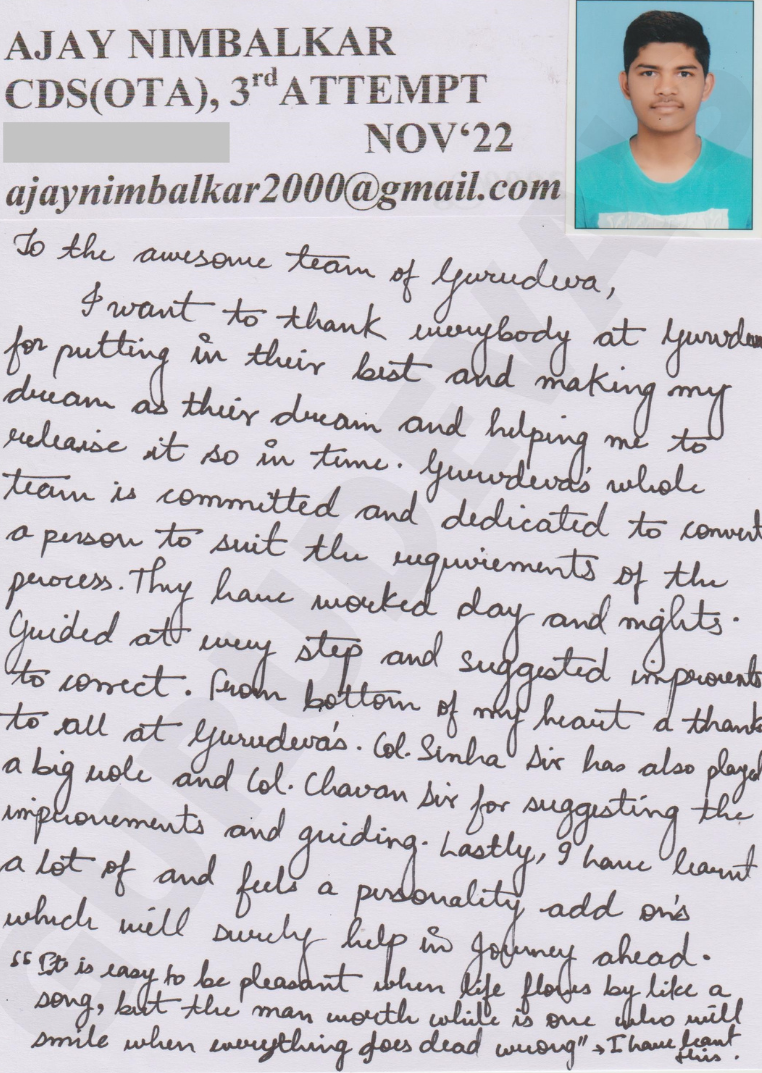 AJAY NIMBALKAR
CDS(OTA), 3rd ATTEMPT
NOV‘22
ajaynimbalkar2000@gmail.com
To the awesome team of Gurudeva,
I want to thank everybody at Gurudeva
for putting in their best and making my
dream as their dream and helping me to
releaise it so in time. Gurudeva's whole
team is committed and dedicated to convert
a person to suit the requirements of the
process. They have worked day and nights.
Guided at every step and suggested improvents
to correct. From bottom of my heart a thanks
to all at Gurudeva's. Col. Sinha Sir has also played
a big role and Col. Chavan Sir for suggesting the
improvements and guiding. Lastly, I have learnt
a lot of and feels a personality add on's
which will surely help in Journey ahead.
“It is easy to be pleasant when life flows by like a
song, but the man worth while is one who will
smile when everything goes dead wrong” → I have learnt
this.
GURUDEVA